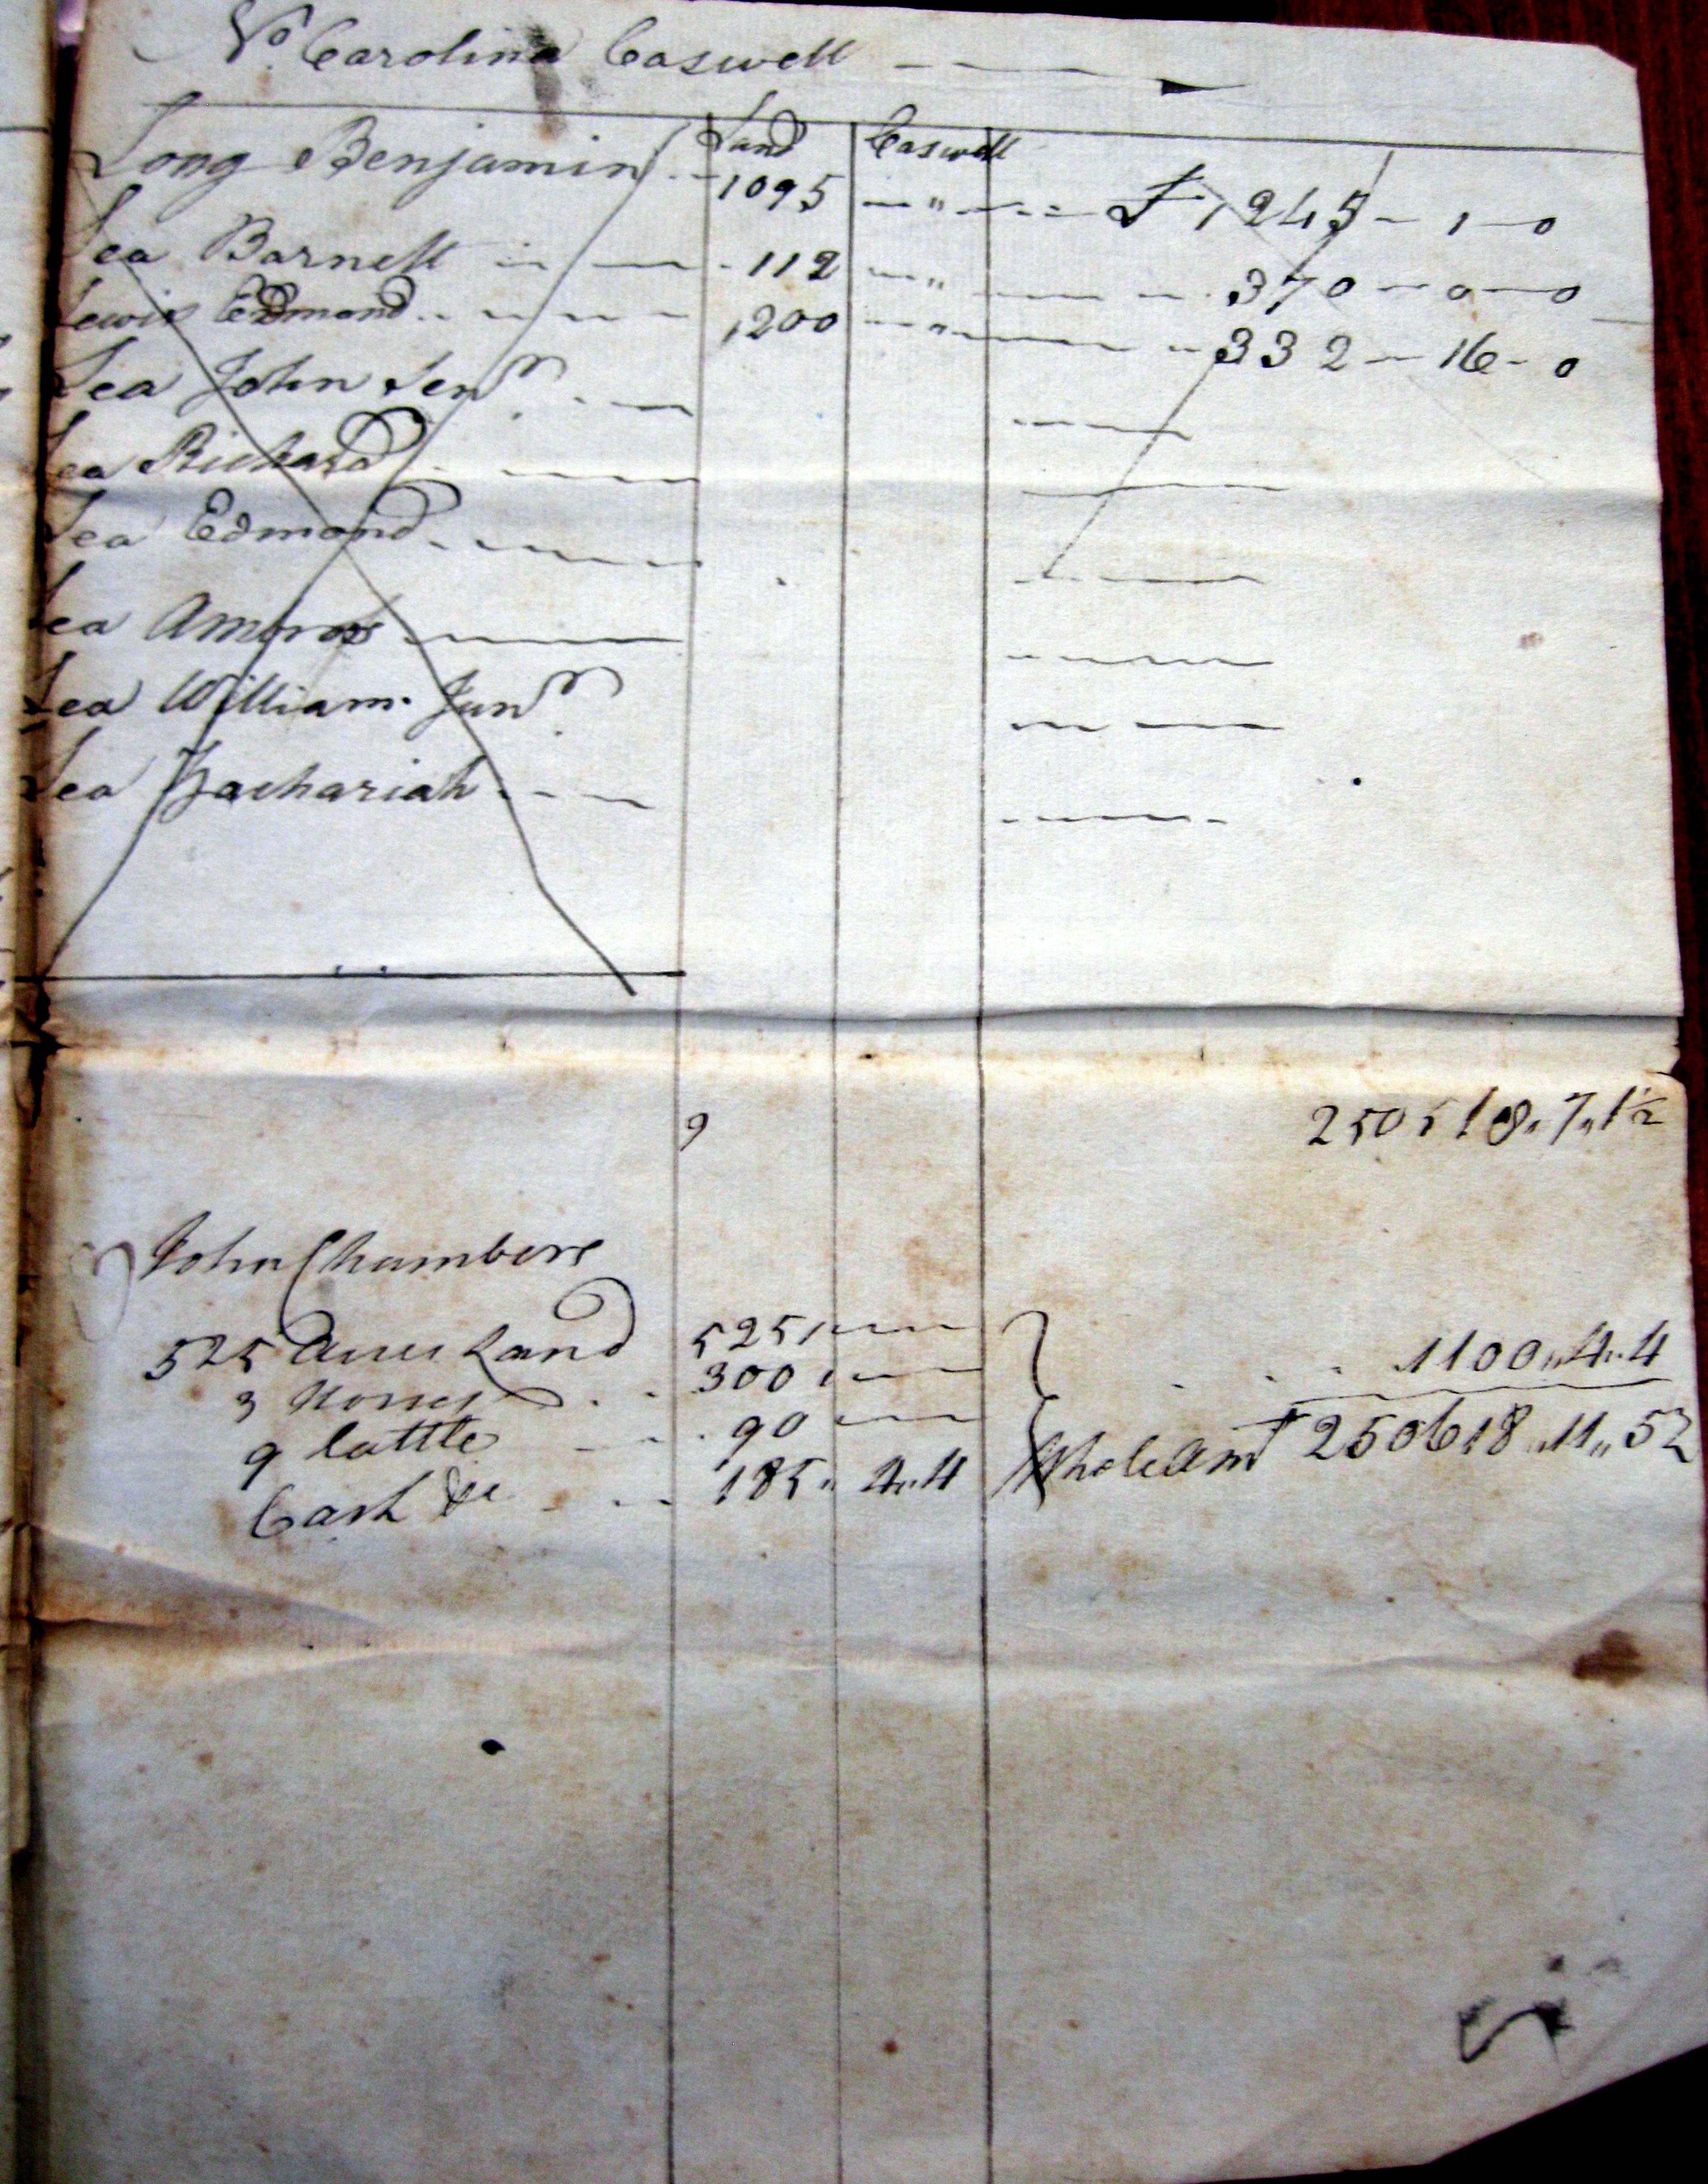 No. Carolina Caswell
Land Caswell
Long Benjamin 1095 " £ 1245 - 1 - 0
Lea Barnett 112 " 370 - 0 - 0
Lewis Edmond 1200 " 332 - 16 - 0
Lea John Senr
Lea Richard
Lea Edmond
Lea Ambros
Lea William Junr
Lea Zachariah
250518,,7,,1½
John Chambers
525 Acres Land 525,,
3 Horses 300,, 1100,,4,,4
9 Cattle 90
Cash &c 185,, 4,,4 Whole Amt £ 250618,,11,,5½